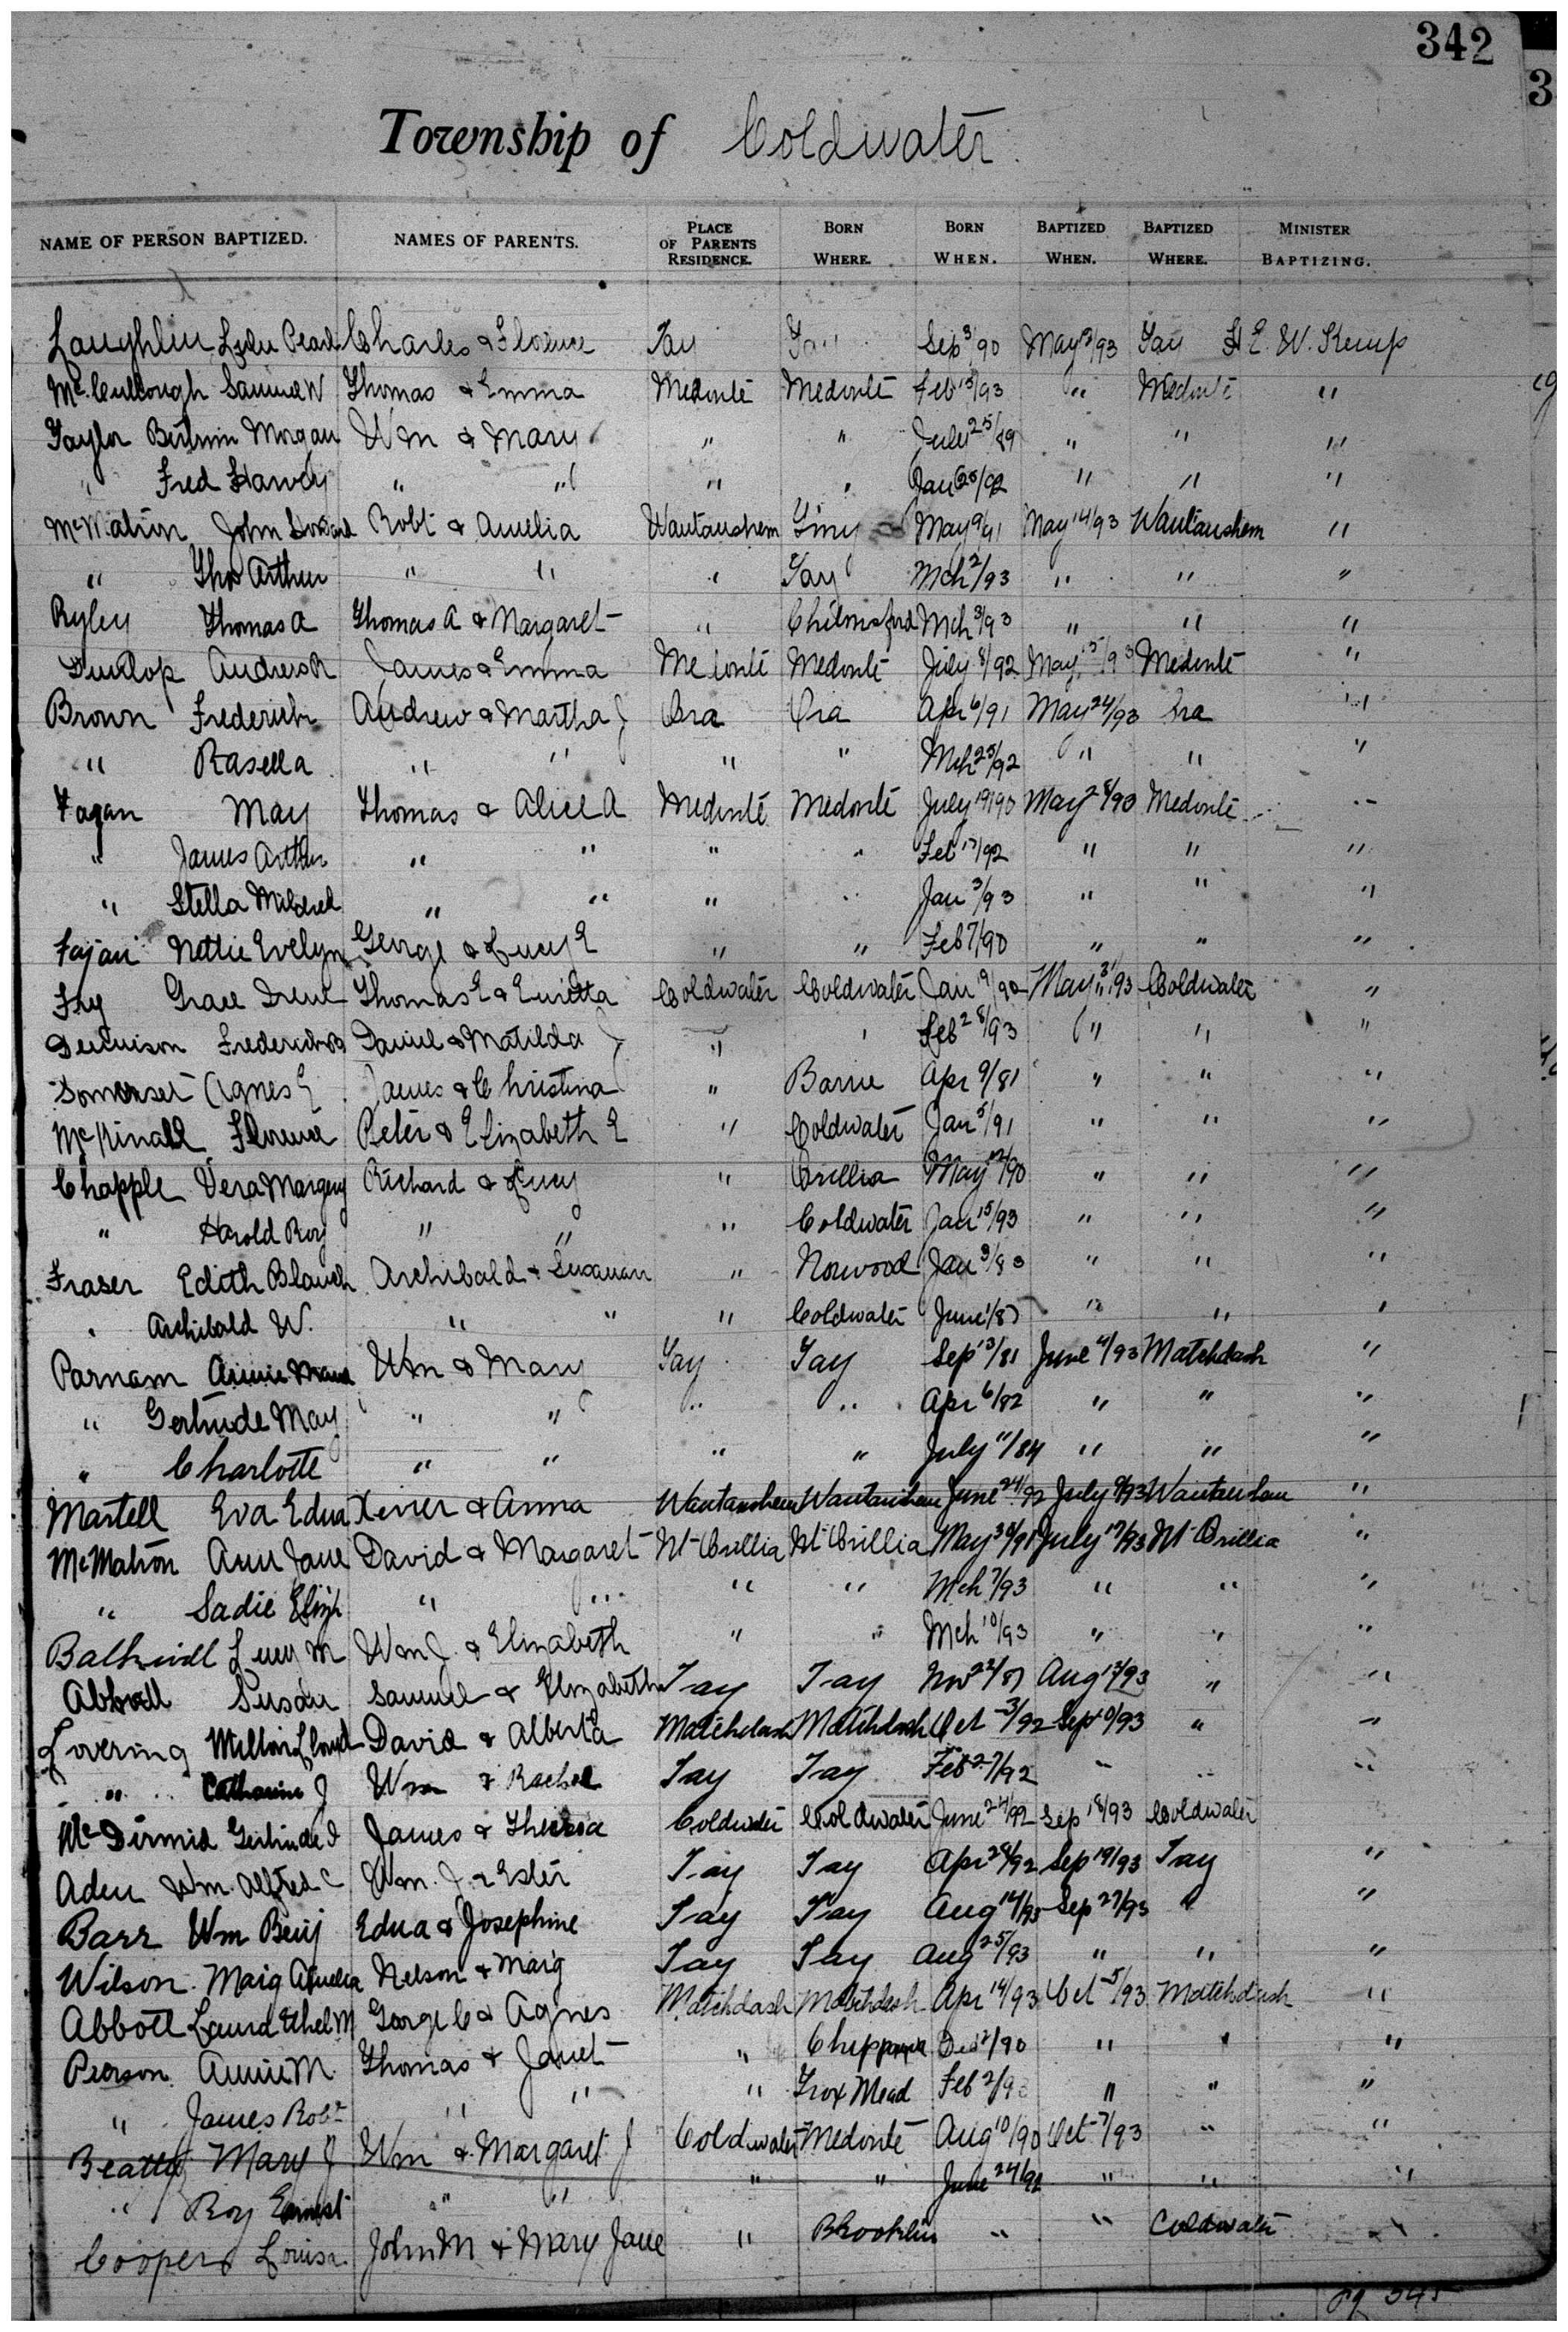 342
3
Township of Coldwater
NAME OF PERSON BAPTIZED. NAMES OF PARENTS. PLACE OF PARENTS RESIDENCE. BORN WHERE. BORN WHEN. BAPTIZED WHEN. BAPTIZED WHERE. MINISTER BAPTIZING.
Laughlin Pearl Charles & Florence Tay Tay Sep 3/90 May /93 Tay E. W. Kemp
McCullough Samuel W Thomas & Emma Medonté Medonté Feb 13/93 " Medonté "
Taylor Morgan Wm & Mary " " July 25/89 " " "
" Fred Harvey " " " " Jan /92 " " "
John Robt & Amelia Waubaushem Tiny May 9/91 May 14/93 Waubaushem "
" Thos Arthur " " " Tay Mch 2/93 " " "
Ryley Thomas A Thomas A & Margaret " Mch 3/93 " " "
Dunlop Andrew R James & Emma Medonté Medonté July 8/92 May 15/93 Medonté "
Brown Frederick Andrew & Martha J Ora Ora Apr 6/91 May 24/93 Ora "
" Rasella " " " " Mch 25/92 " " "
Fagan May Thomas & Alice A Medonté Medonté July 19/90 May 28/93 Medonté "
" James Arthur " " " " Feb 17/92 " " "
" Stella Mildred " " " " Jan 3/93 " " "
Nettie Evelyn George & Lucy E " " Feb 7/90 " " "
Fry Grace Irene Thomas E & Coldwater Coldwater Jan 9/90 May 31/93 Coldwater "
Dennison Frederick B Daniel & Matilda " " Feb 28/93 " " "
Somerset Agnes E James & Christina " Barrie Apr 9/81 " " "
Florence Peter & Elizabeth E " Coldwater Jan 5/91 " " "
Chapple Vera Margery Richard & Lucy " Orillia May 12/90 " " "
" Harold Roy " " " Coldwater Jan 15/93 " " "
Fraser Edith Blanch Archibald & Susanan " Norwood Jan 3/83 " " "
" Archibald W. " " " Coldwater June 1/87 " " "
Parnam Annie Maud Wm & Mary Tay Tay Sep 13/81 June 4/93 Matchdash "
" Gertrude May " " " " Apr 6/82 " " "
" Charlotte " " " " July 11/84 " " "
Martell Eva Edna & Anna Waubaushem Waubaushem June 24/92 July 9/93 Waubaushem "
McMahon Ann Jane David & Margaret Nt Orillia Nt Orillia May 30/91 July 17/93 Nt Orillia "
" Sadie Elizh " " " " Mch 7/93 " " "
Balkwill Lucy M Wm J. & Elizabeth " " Mch 10/93 " " "
Abbott Susan Samuel & Elizabeth Tay Tay Nov 22/87 Aug 12/93 " "
Lovering Milton Lloyd David & Alberta Matchdash Matchdash Oct 3/92 Sept 10/93 " "
" Catharine J Wm & Rachel Tay Tay Feb 27/92 " " "
McDirmid Gertrude I James & Theresa Coldwater Coldwater June 24/92 Sep 18/93 Coldwater
Aden Wm. Alfred C Wm. J. & Ester Tay Tay Apr 28/92 Sep 19/93 Tay "
Barr Wm Benj Edna & Josephine Tay Tay Aug 14/93 Sep 27/93 " "
Wilson Marg Amelia Nelson & Marg Tay Tay Aug 25/93 " " "
Abbott Laura Ethel M George C & Agnes Matchdash Matchdash Apr 14/93 Oct 5/93 Matchdash "
Pearson Annie M. Thomas & Janet " Chippawa Dec 2/90 " " "
" James Robt " " " Mead Feb 2/93 " " "
Beatty Mary J Wm & Margaret J Coldwater Medonté Aug 10/90 Oct 7/93 " "
" Roy Ernest " " " " June 24/92 " " "
Cooper Louisa John M & Mary Jane " Brooklin " " Coldwater "
pg 345